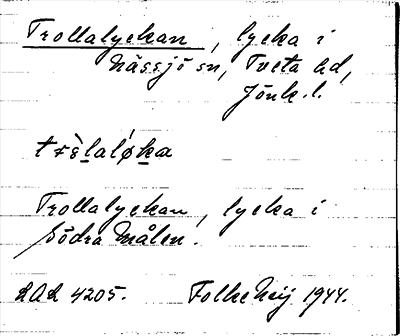 Trollalyckan, lycka i
Nässjö sn, Tveta hd,
Jönk. l.
Trollalyckan, lycka i
Södra Målen.
LAL 4205. Folke Heij 1944.